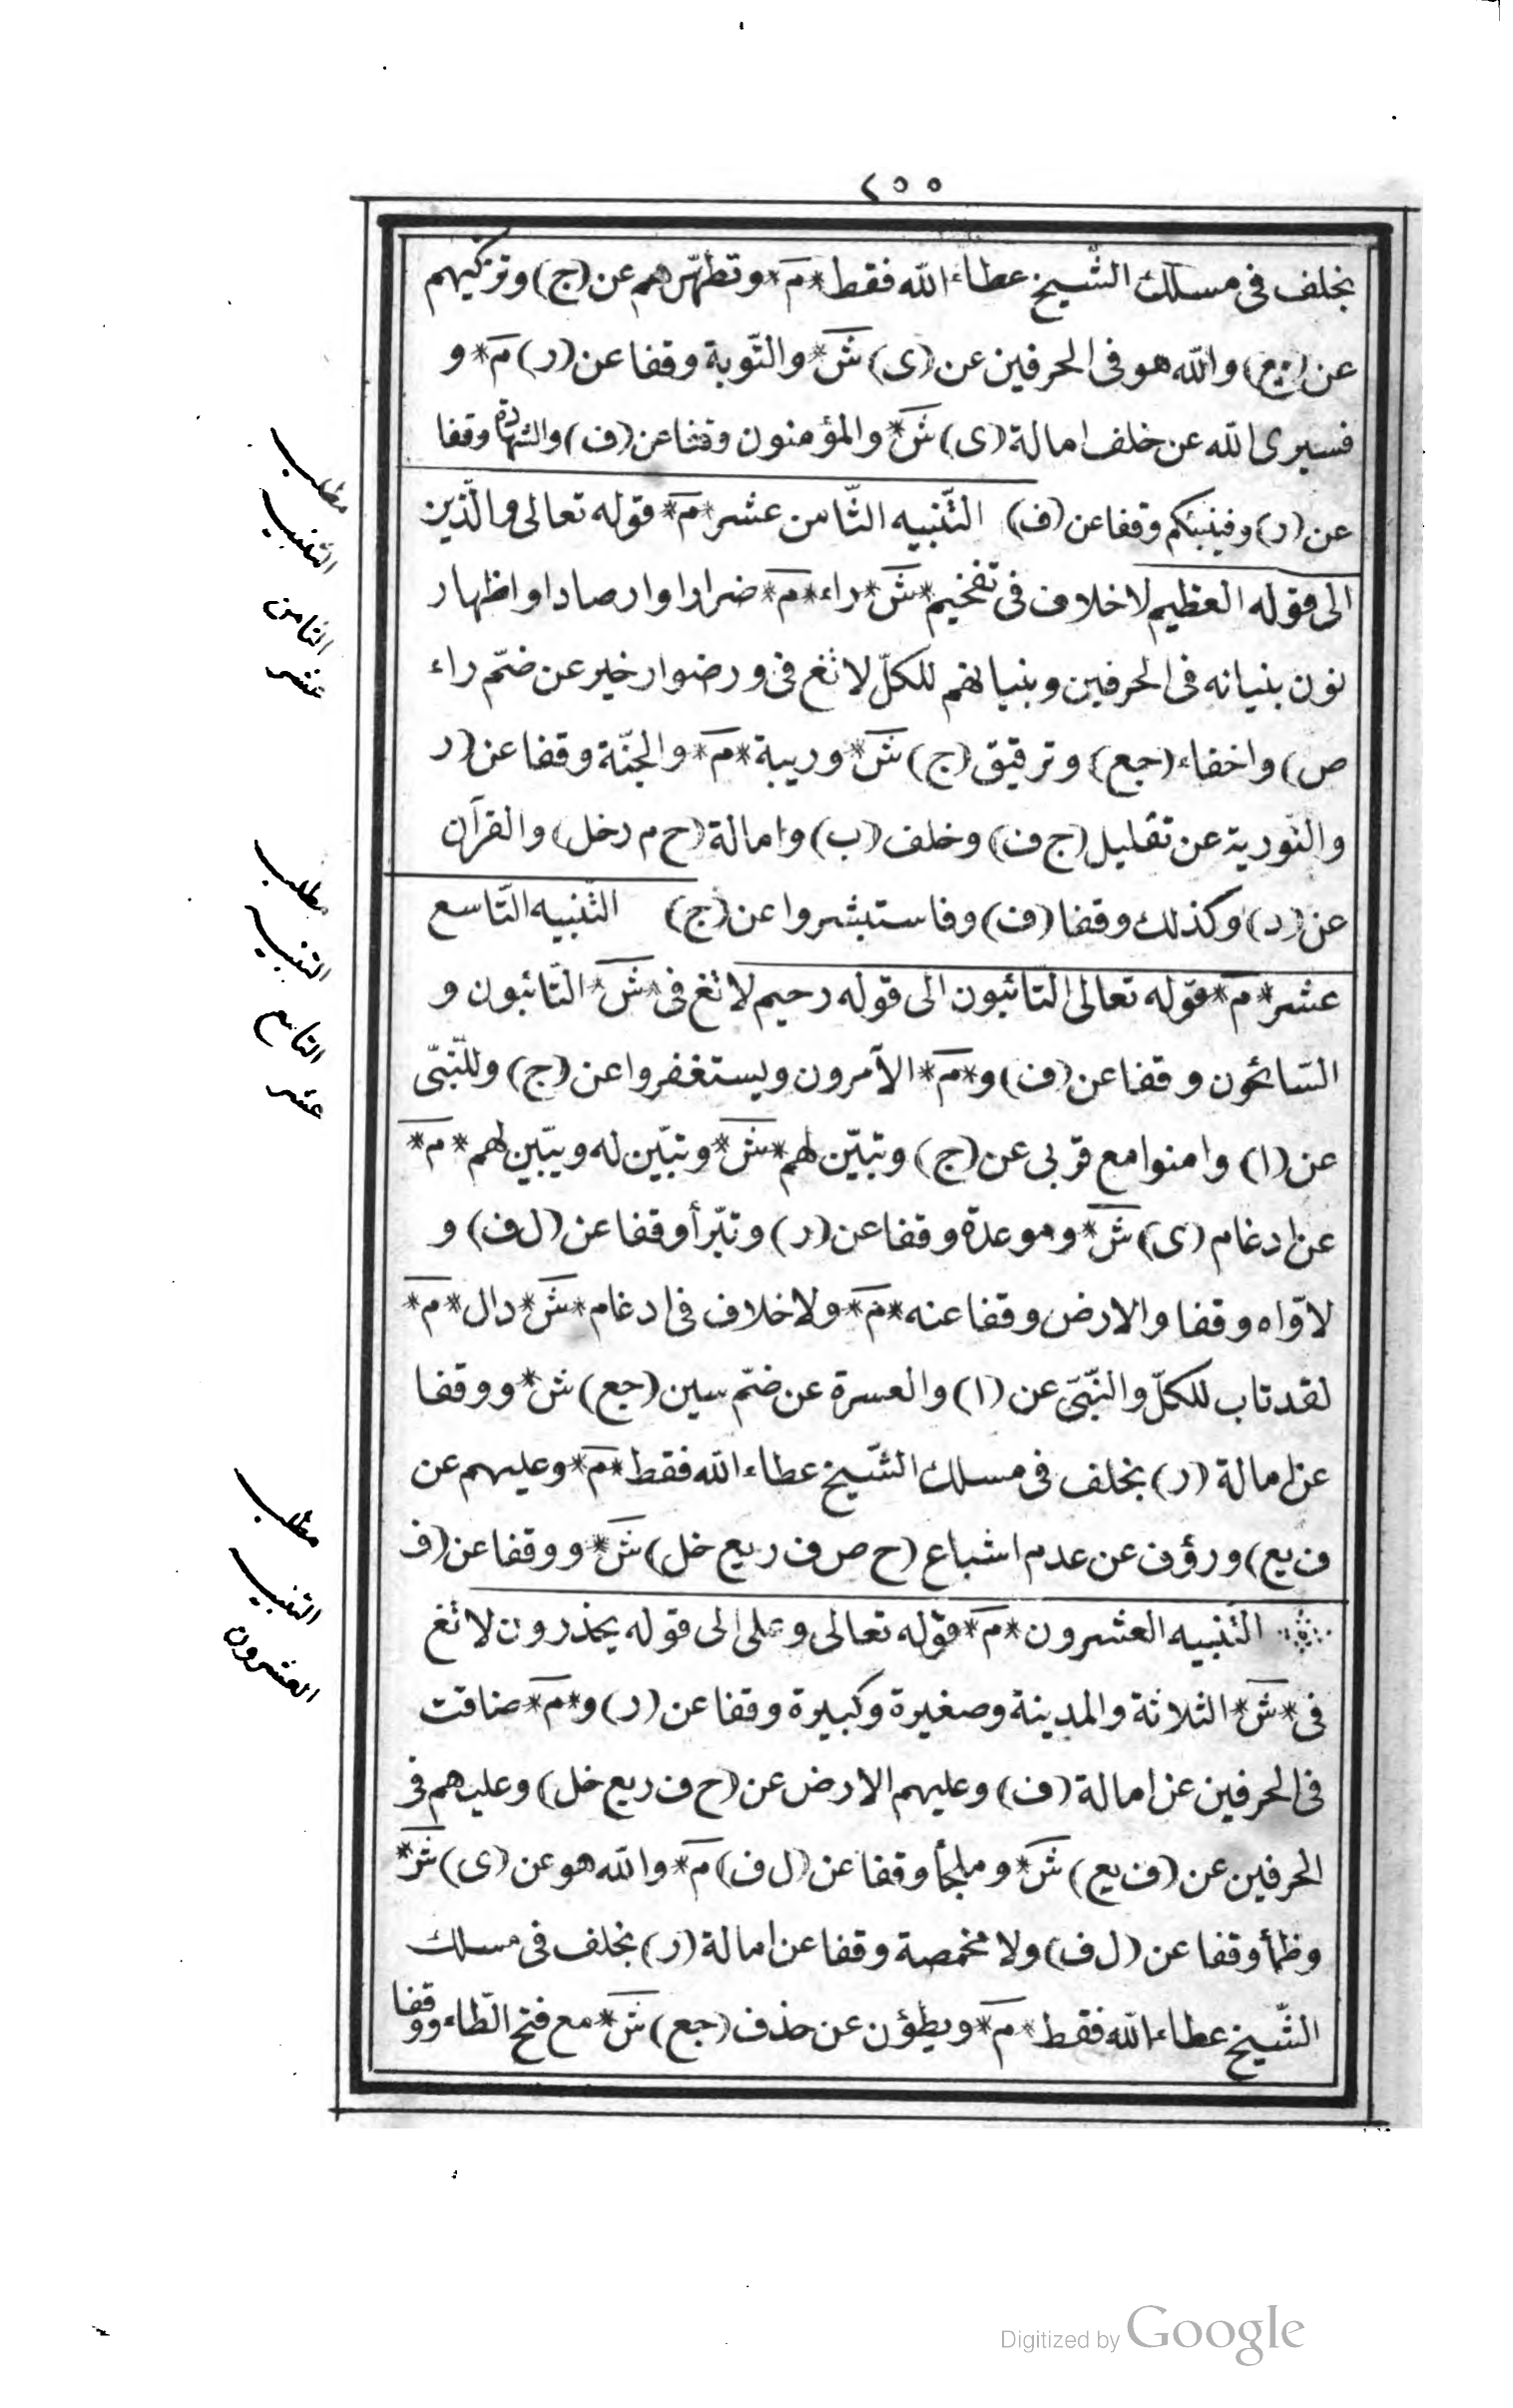 ٢٥٥
بخلف فى مسلك الشّيخ عطاء الله فقط * م * وتطهّرهم عن (ج) وتزكّيهم
عن () والله هو فى الحرفين عن (ى) ش * والتّوبة وقفا عن (ر) م * و
فسيرى الله عن خلف امالة (ى) ش * والمؤمنون وقفا عن (ف) والشهادة وقفا
عن (ر) وفينبئكم وقفا عن (ف) التّنبيه الثّامن عشر * م * قوله تعالى والّذين
الى قوله العظيم لا خلاف فى تفخيم * ش * راء * م * ضرارا وارصادا واظهار
نون بنيانه فى الحرفين وبنيانهم للكلّ لا تغ فى ورضوار خير عن ضمّ راء
ص) واخفاء (جع) وترقيق (ج) ش * وريبة * م * والجنّة وقفا عن (ر
والتّورية عن تقليل (ج ف) وخلف (ب) وامالة (ح م رخل) والقرآن
عن (د) وكذلك وقفا (ف) وفاستبشروا عن (ج) التّنبيه التّاسع
عشر * م * قوله تعالى التائبون الى قوله رحيم لا تغ فى * ش * التّائبون و
السّائحون وقفا عن (ف) و * م * الآمرون ويستغفروا عن (ج) وللنّبىّ
عن (ا) وامنوا مع قربى عن (ج) وتبيّن لهم * ش * وتبيّن له ويبيّين لهم * م *
عن ادغام (ى) ش * وموعدة وقفا عن (ر) وتبّرأ وقفا عن (ل ف) و
لاوّاه وقفا والارض وقفا عنه * م * ولا خلاف فى ادغام * ش * دال * م *
لقد تاب للكلّ والنّبىّ عن (ا) والعسرة عن ضمّ سين (جع) ش * ووقفا
عن امالة (ر) بخلف فى مسلك الشّيخ عطاء الله فقط * م * وعليهم عن
ف يع) ورؤف عن عدم اشباع (ح ص ف ر يع خل) ش * ووقفا عن (ف
التّنبيه العشرون * م * قوله تعالى وعلى الى قوله يحذرون لا تغ
فى * ش * الثلاثة والمدينة وصغيرة وكبيرة وقفا عن (ر) و * م * ضاقت
فى الحرفين عن امالة (ف) وعليهم الارض عن (ح ف ر يع خل) وعليهم فى
الحرفين عن (ف يع) ش * وملجأ وقفا عن (ل ف) م * والله هو عن (ى) ش *
وظمأ وقفا عن (ل ف) ولا مخمصة وقفا عن امالة (ر) بخلف فى مسلك
الشّيخ عطاء الله فقط * م * ويطؤن عن حذف (جع) ش * مع فتح الطّاء ووقفا
مطلب
التنبيه
الثامن
عشر
مطلب
التنبيه
التاسع
عشر
مطلب
التنبيه
العشرون
Digitized by Google